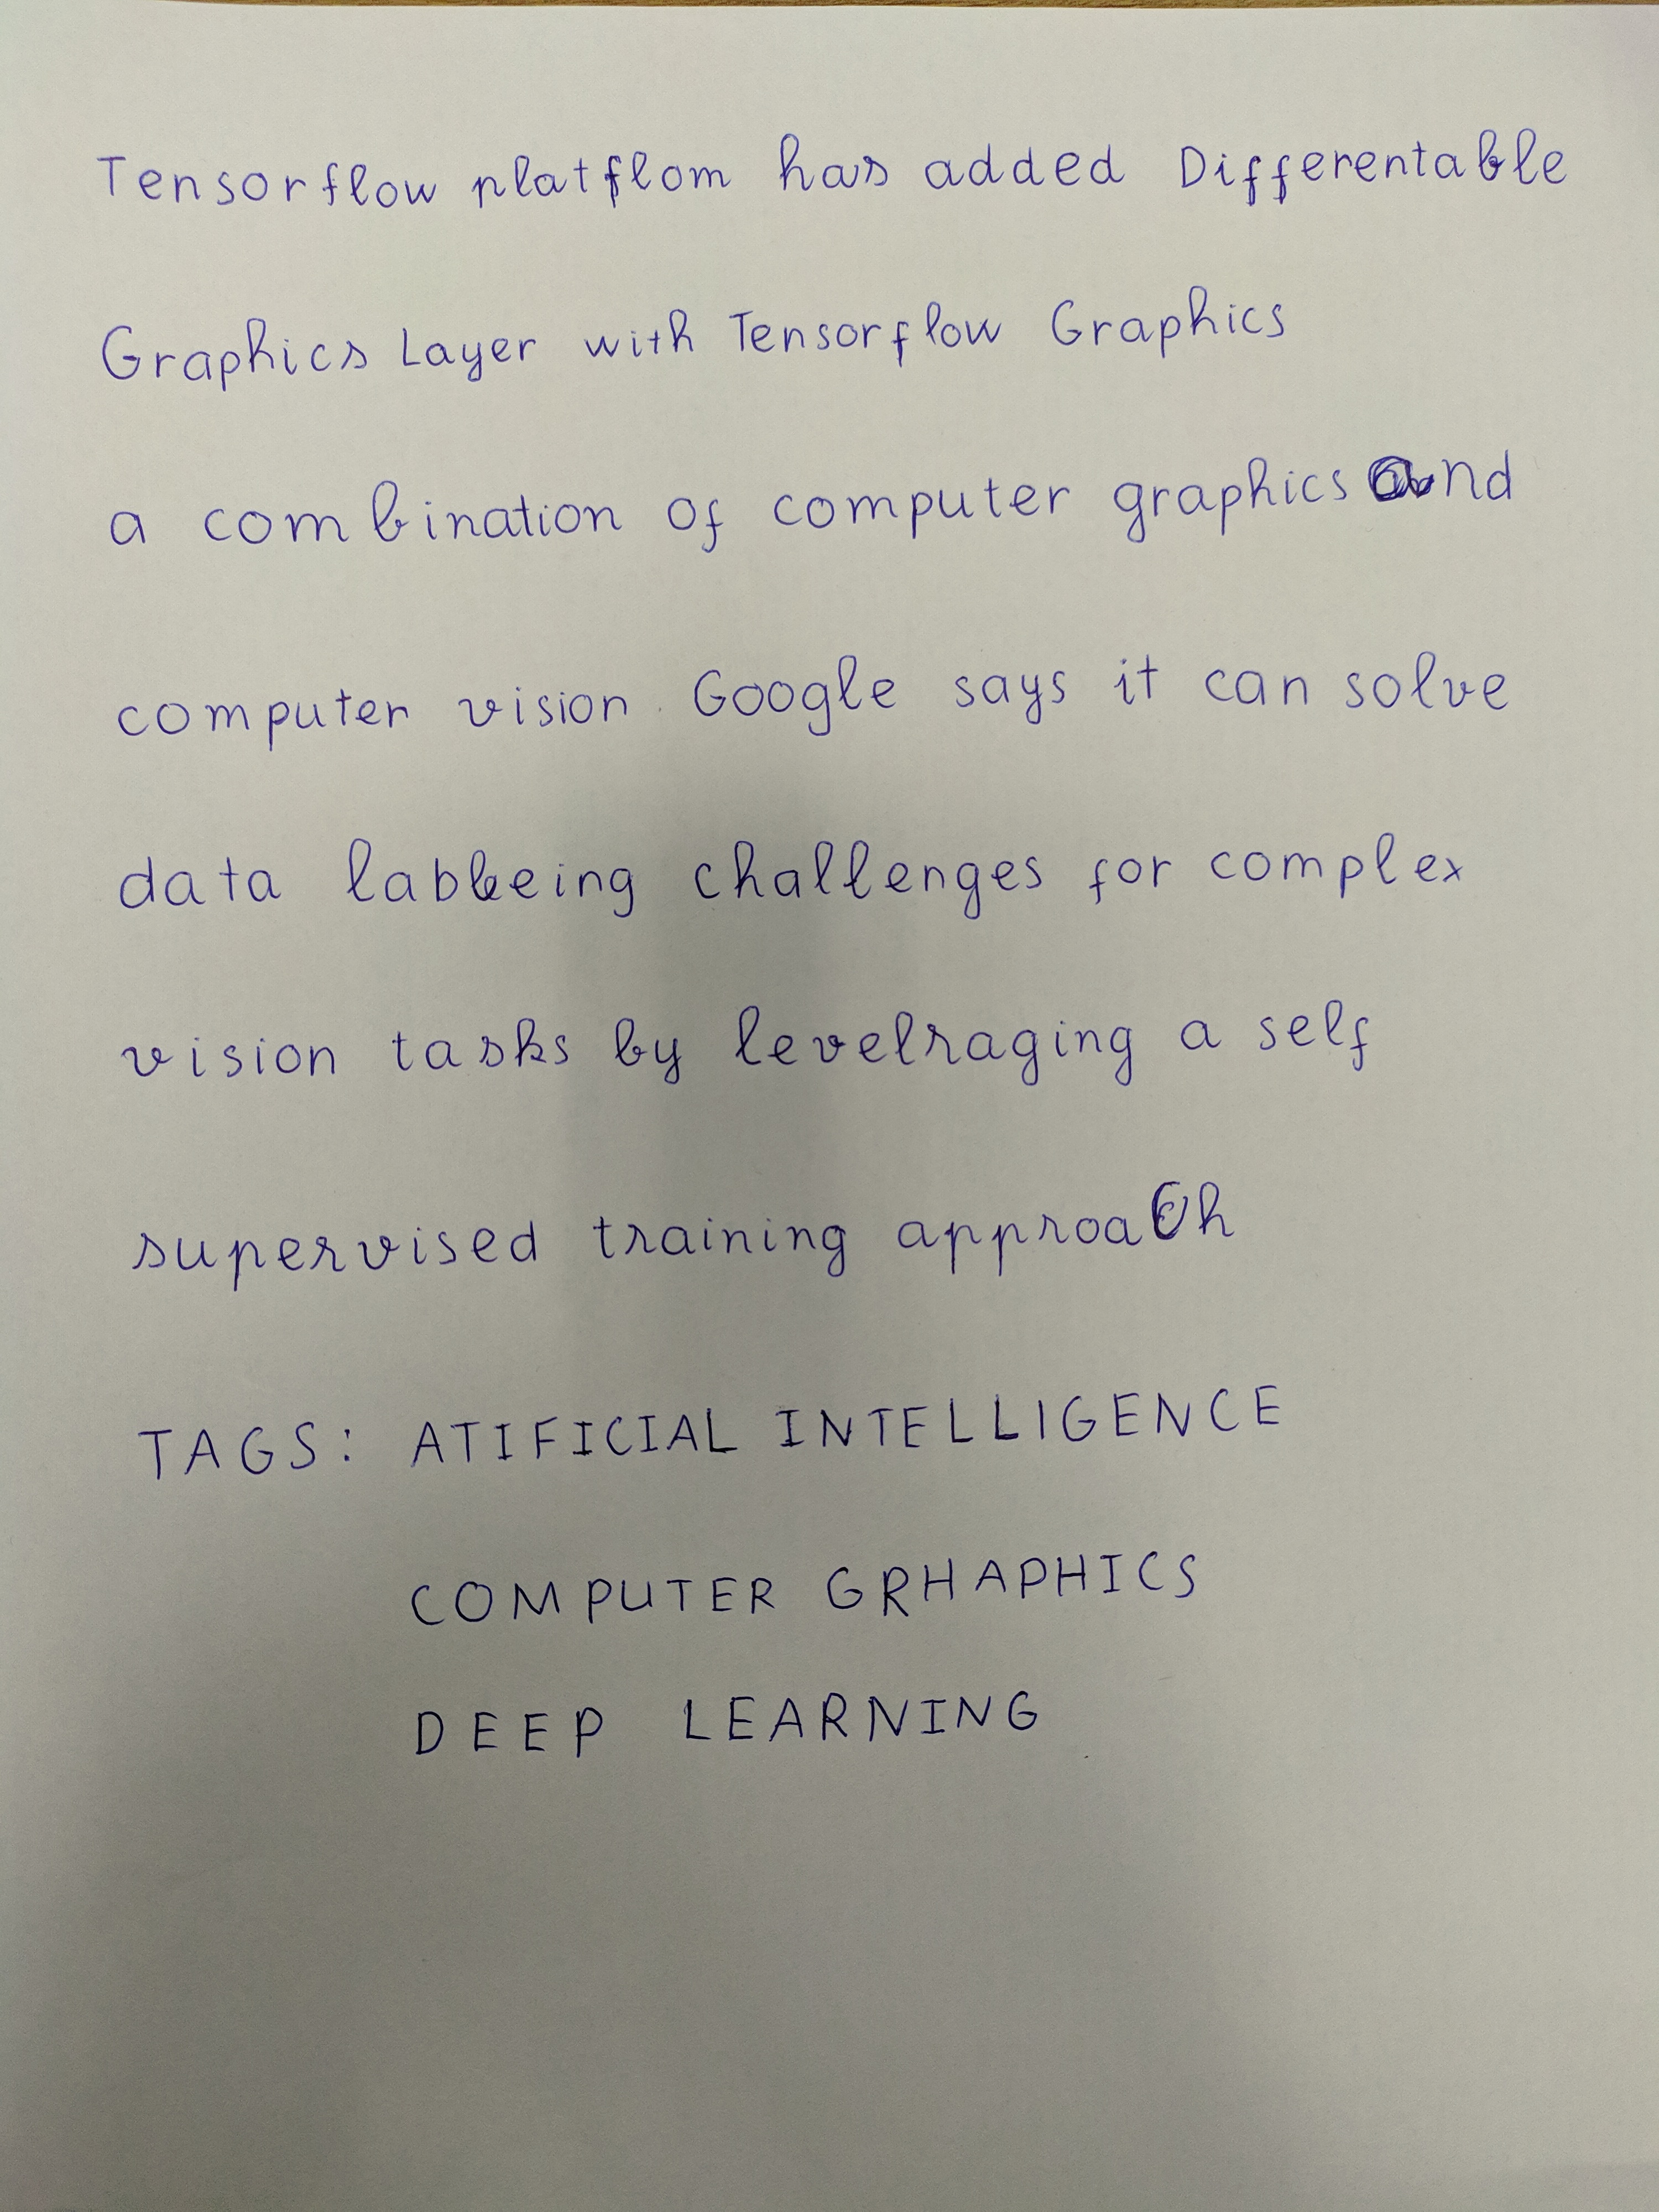 Tensorflow platflom has added Differentable
Graphics Layer with Tensorflow Graphics
a combination of computer graphics and
computer vision. Google says it can solve
data labeeing challenges for complex
vision tasks by levelraging a self
supervised training approach
TAGS: ATIFICIAL INTELLIGENCE
COMPUTER GRHAPHICS
DEEP LEARNING